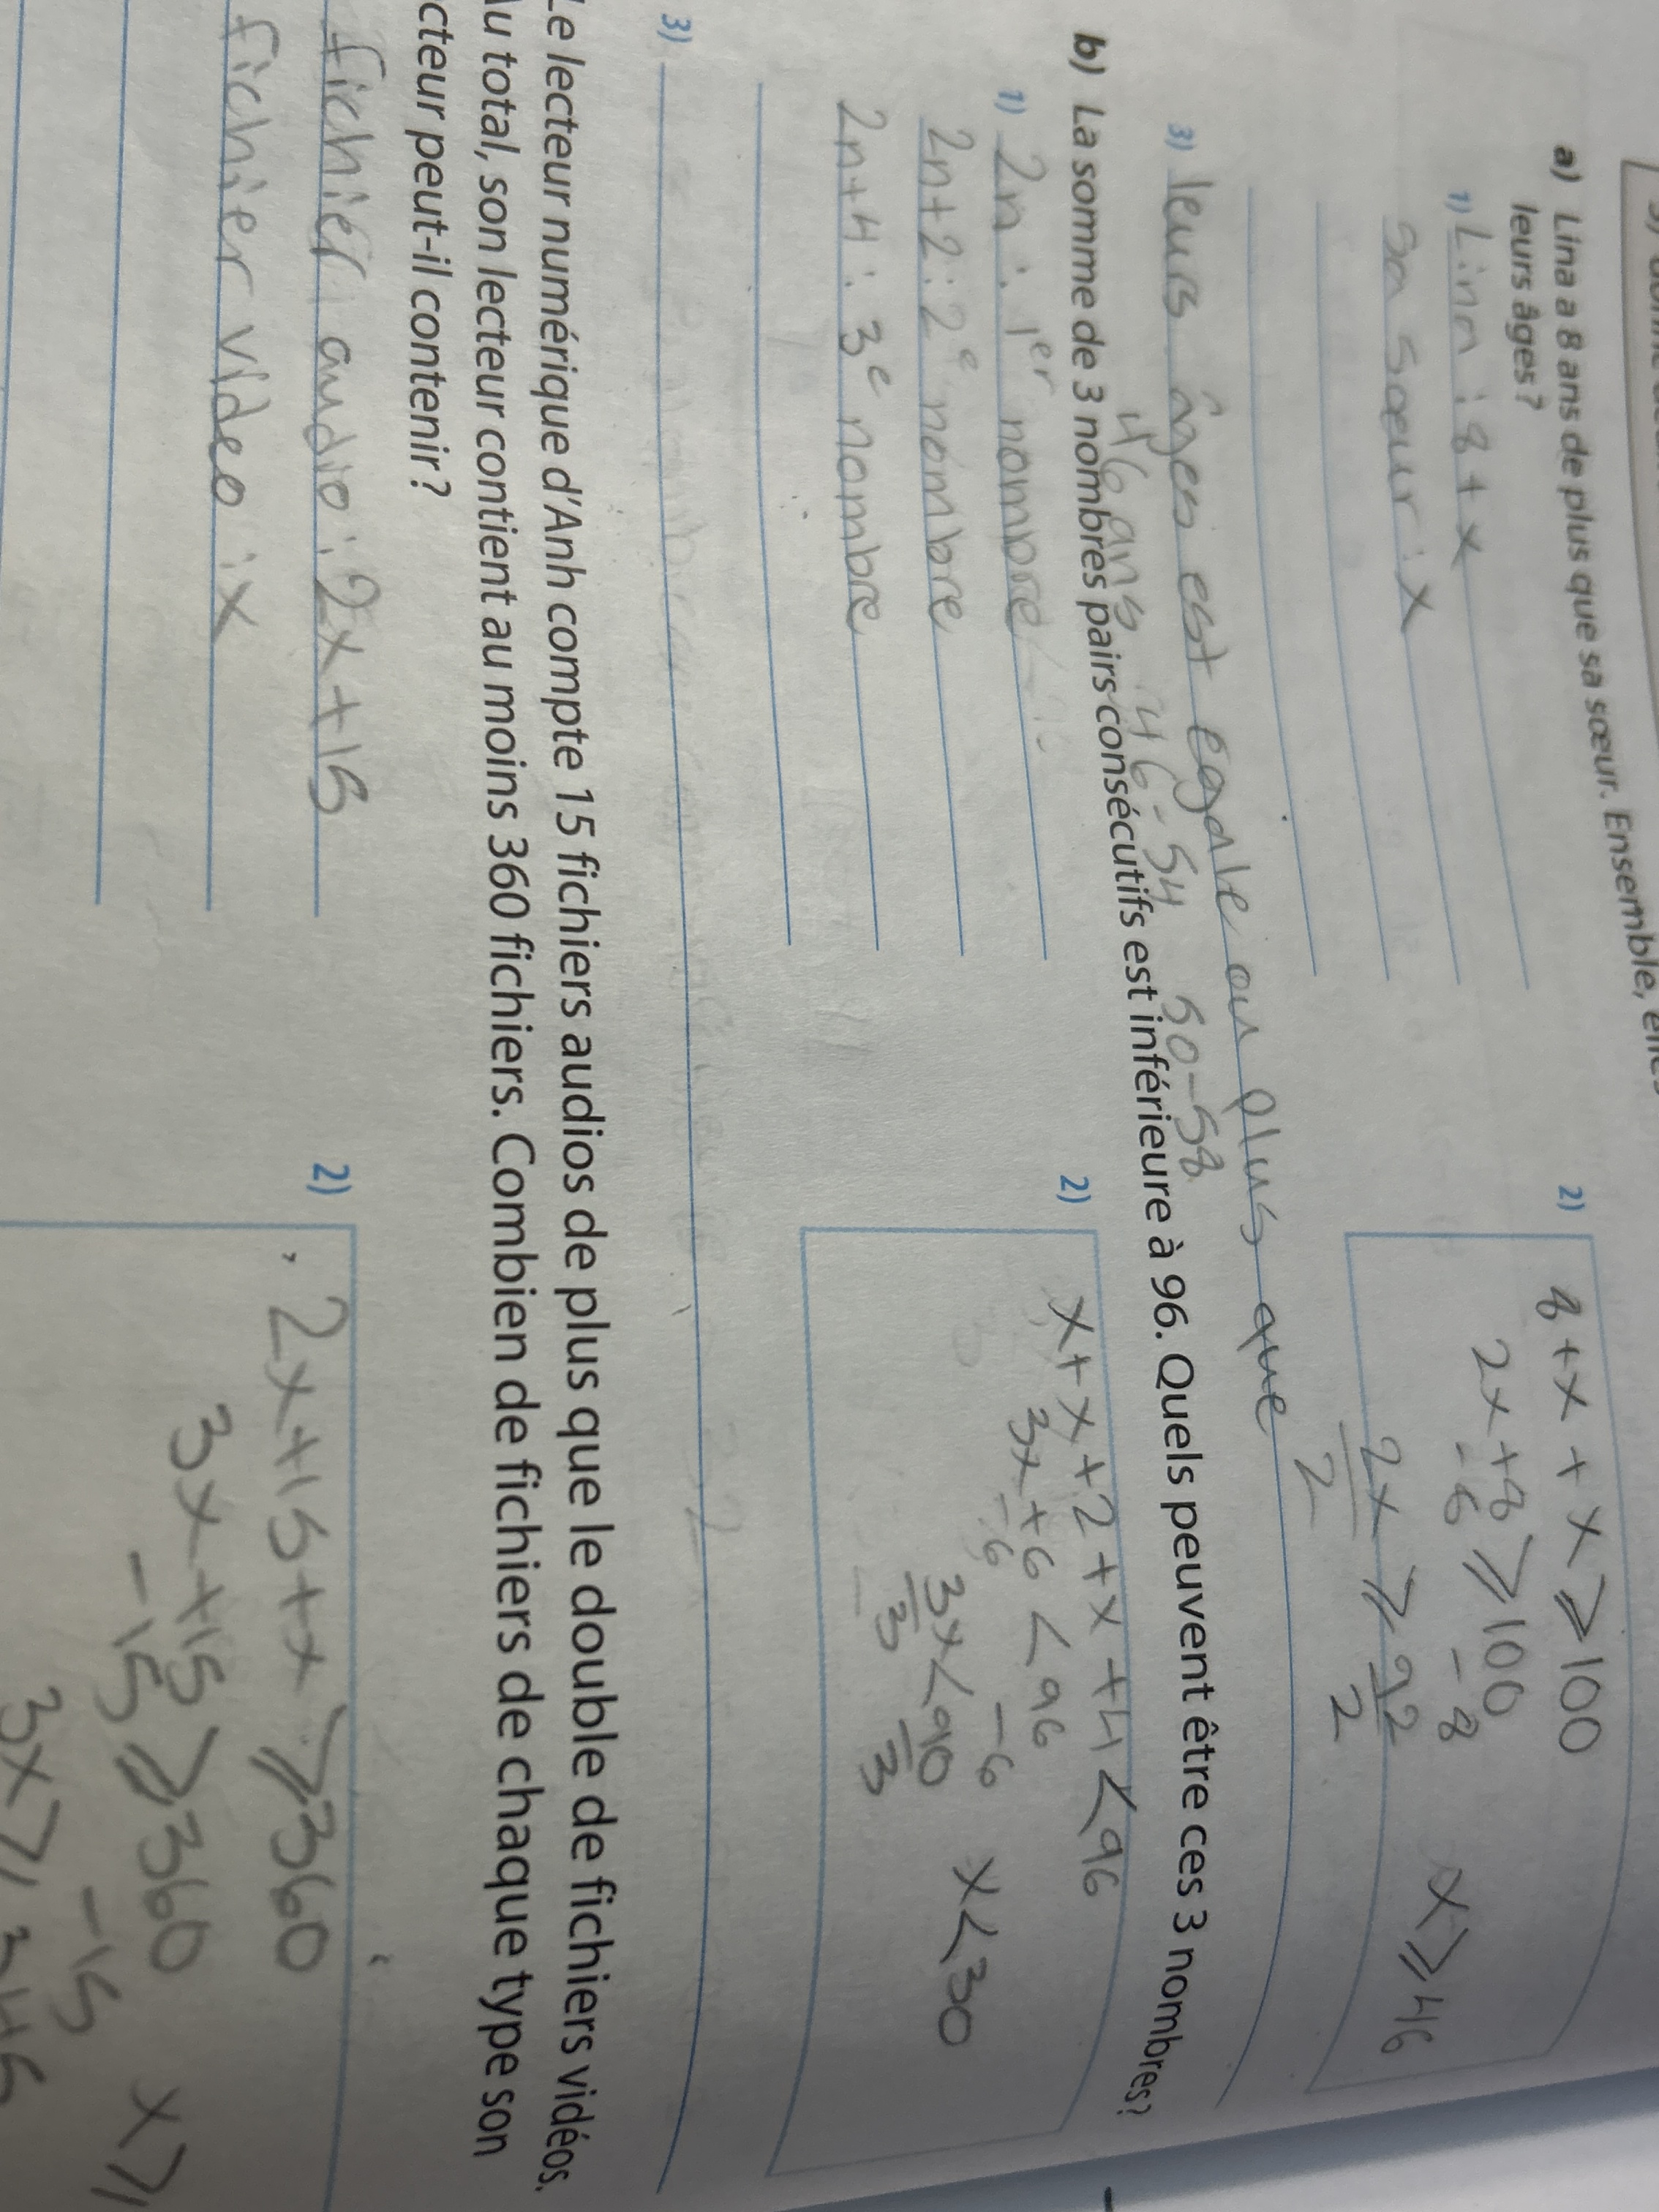 a) Lina a 8 ans de plus que sa sœur. Ensemble,
leurs âges ?
1) Lina : 8 + x
sa sœur : x
2) 8 + x + x ⩾ 100
2x + 8 ⩾ 100
-8
2x ⩾ 92
2 2
x ⩾ 46
3) leurs âges est égale ou plus que
46 ans 46-54 50-58
b) La somme de 3 nombres pairs consécutifs est inférieure à 96. Quels peuvent être ces 3 nombres?
1) 2n : 1er nombre
2n+2 : 2e nombre
2n+4 : 3e nombre
2) x + x + 2 + x + 4 < 96
3x + 6 < 96
-6 -6
3x < 90
3 3
x < 30
3)
Le lecteur numérique d'Anh compte 15 fichiers audios de plus que le double de fichiers vidéos.
Au total, son lecteur contient au moins 360 fichiers. Combien de fichiers de chaque type son
cteur peut-il contenir ?
fichier audio : 2x + 15
fichier video : x
2) 2x + 15 + x ⩾ 360
3x + 15 ⩾ 360
-15 -15
3x ⩾ 345
x ⩾